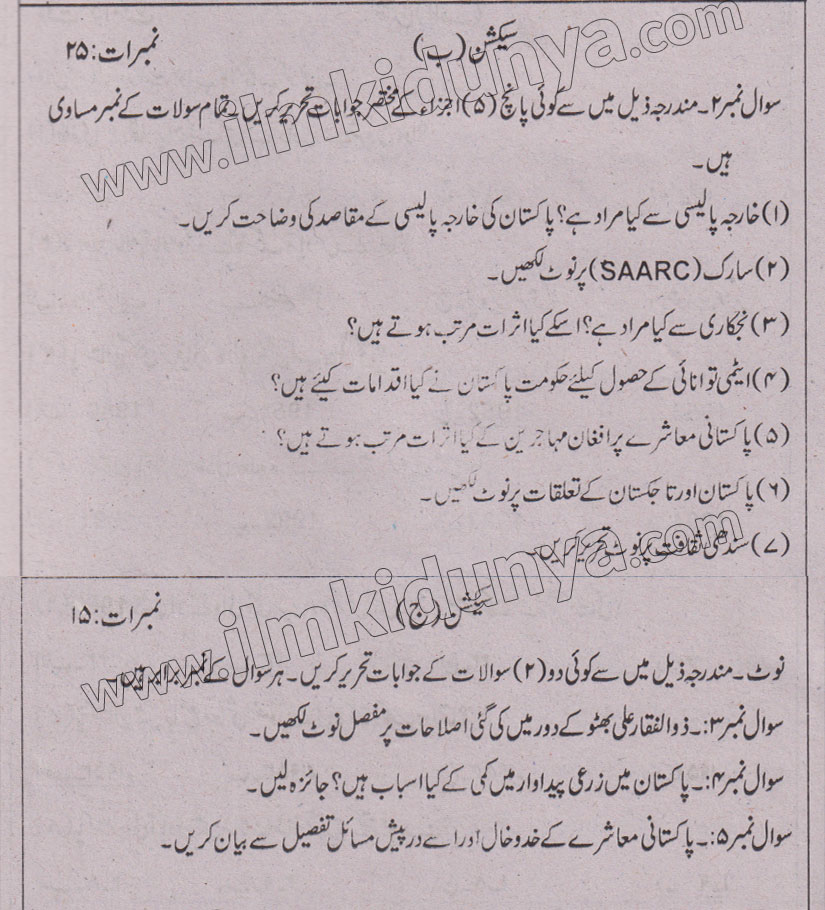 سیکشن (ب) نمبرات: ۲۵
سوال نمبر ۲۔ مندرجہ ذیل میں سے کوئی پانچ (۵) اجزاء کے مختصر جوابات تحریر کریں۔ تمام سوالات کے نمبر مساوی
ہیں۔
(۱) خارجہ پالیسی سے کیا مراد ہے؟ پاکستان کی خارجہ پالیسی کے مقاصد کی وضاحت کریں۔
(۲) سارک (SAARC) پر نوٹ لکھیں۔
(۳) نجکاری سے کیا مراد ہے؟ اسکے کیا اثرات مرتب ہوتے ہیں؟
(۴) ایٹمی توانائی کے حصول کیلئے حکومت پاکستان نے کیا اقدامات کیئے ہیں؟
(۵) پاکستانی معاشرے پر افغان مہاجرین کے کیا اثرات مرتب ہوتے ہیں؟
(۶) پاکستان اور تاجکستان کے تعلقات پر نوٹ لکھیں۔
(۷) سندھی ثقافت پر نوٹ تحریر کریں۔
سیکشن (ج) نمبرات: ۱۵
نوٹ۔ مندرجہ ذیل میں سے کوئی دو (۲) سوالات کے جوابات تحریر کریں۔ ہر سوال کے نمبر برابر ہیں۔
سوال نمبر ۳:۔ ذوالفقار علی بھٹو کے دور میں کی گئی اصلاحات پر مفصل نوٹ لکھیں۔
سوال نمبر ۴:۔ پاکستان میں زرعی پیداوار میں کمی کے کیا اسباب ہیں؟ جائزہ لیں۔
سوال نمبر ۵:۔ پاکستانی معاشرے کے خدوخال اور اسے درپیش مسائل تفصیل سے بیان کریں۔
www.ilmkidunya.com
www.ilmkidunya.com